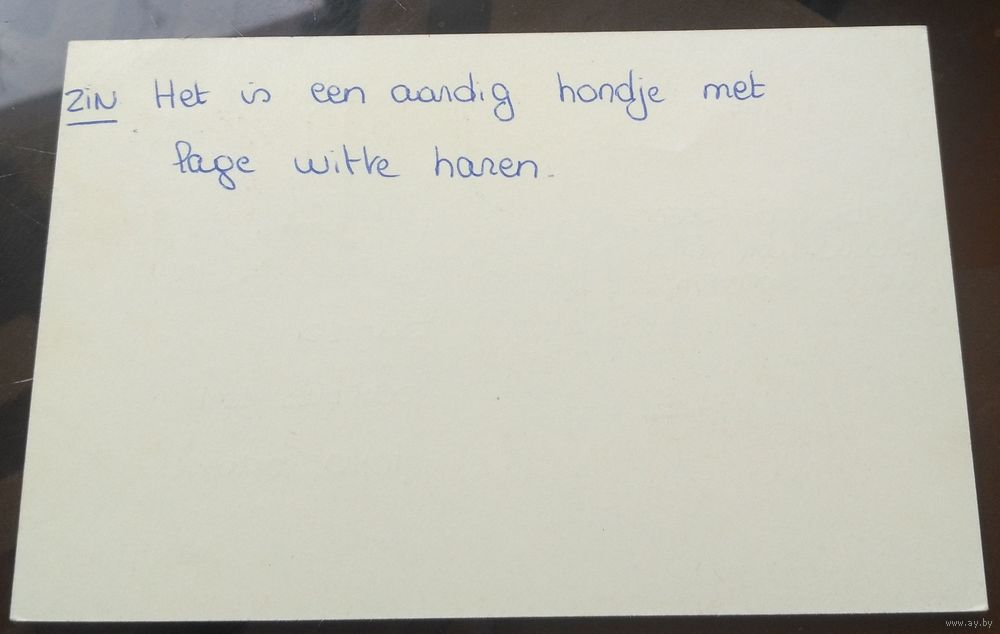 ZiN Het is een aardig hondje met
lage witte haren.
www.ay.by